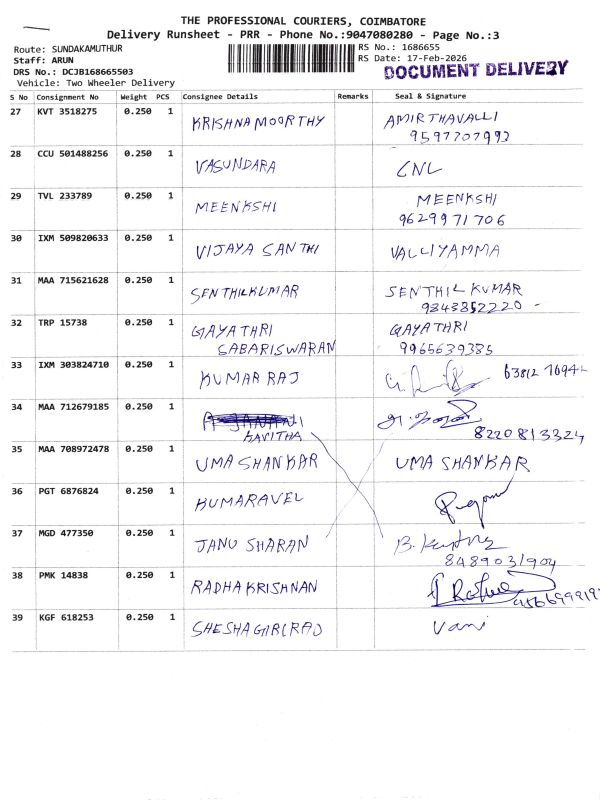 THE PROFESSIONAL COURIERS, COIMBATORE
Delivery Runsheet - PRR - Phone No.:9047080280 - Page No.:3
Route: SUNDAKAMUTHUR
RS No.: 1686655
Staff: ARUN
RS Date: 17-Feb-2026
DRS No.: DCJB168665503
DOCUMENT DELIVERY
Vehicle: Two Wheeler Delivery
S No Consignment No Weight PCS Consignee Details Remarks Seal & Signature
27 KVT 3518275 0.250 1 KRISHNAMOORTHY AMIRTHAVALLI
9597707993
28 CCU 501488256 0.250 1 VASUNDARA CNL
29 TVL 233789 0.250 1 MEENKSHI MEENKSHI
9629971706
30 IXM 509820633 0.250 1 VIJAYA SANTHI VALLIYAMMA
31 MAA 715621628 0.250 1 SENTHILKUMAR SENTHIL KUMAR
9843852220 -
32 TRP 15738 0.250 1 GAYATHRI GAYATHRI
SABARISWARAN 9965639385
33 IXM 303824710 0.250 1 KUMAR RAJ
34 MAA 712679185 0.250 1
KAVITHA 8220813324
35 MAA 708972478 0.250 1 UMA SHANKAR UMA SHANKAR
36 PGT 6876824 0.250 1 KUMARAVEL
37 MGD 477350 0.250 1 JANU SHARAN
8489031904
38 PMK 14838 0.250 1 RADHA KRISHNAN
39 KGF 618253 0.250 1 SHESHAGIRIRAO Vani